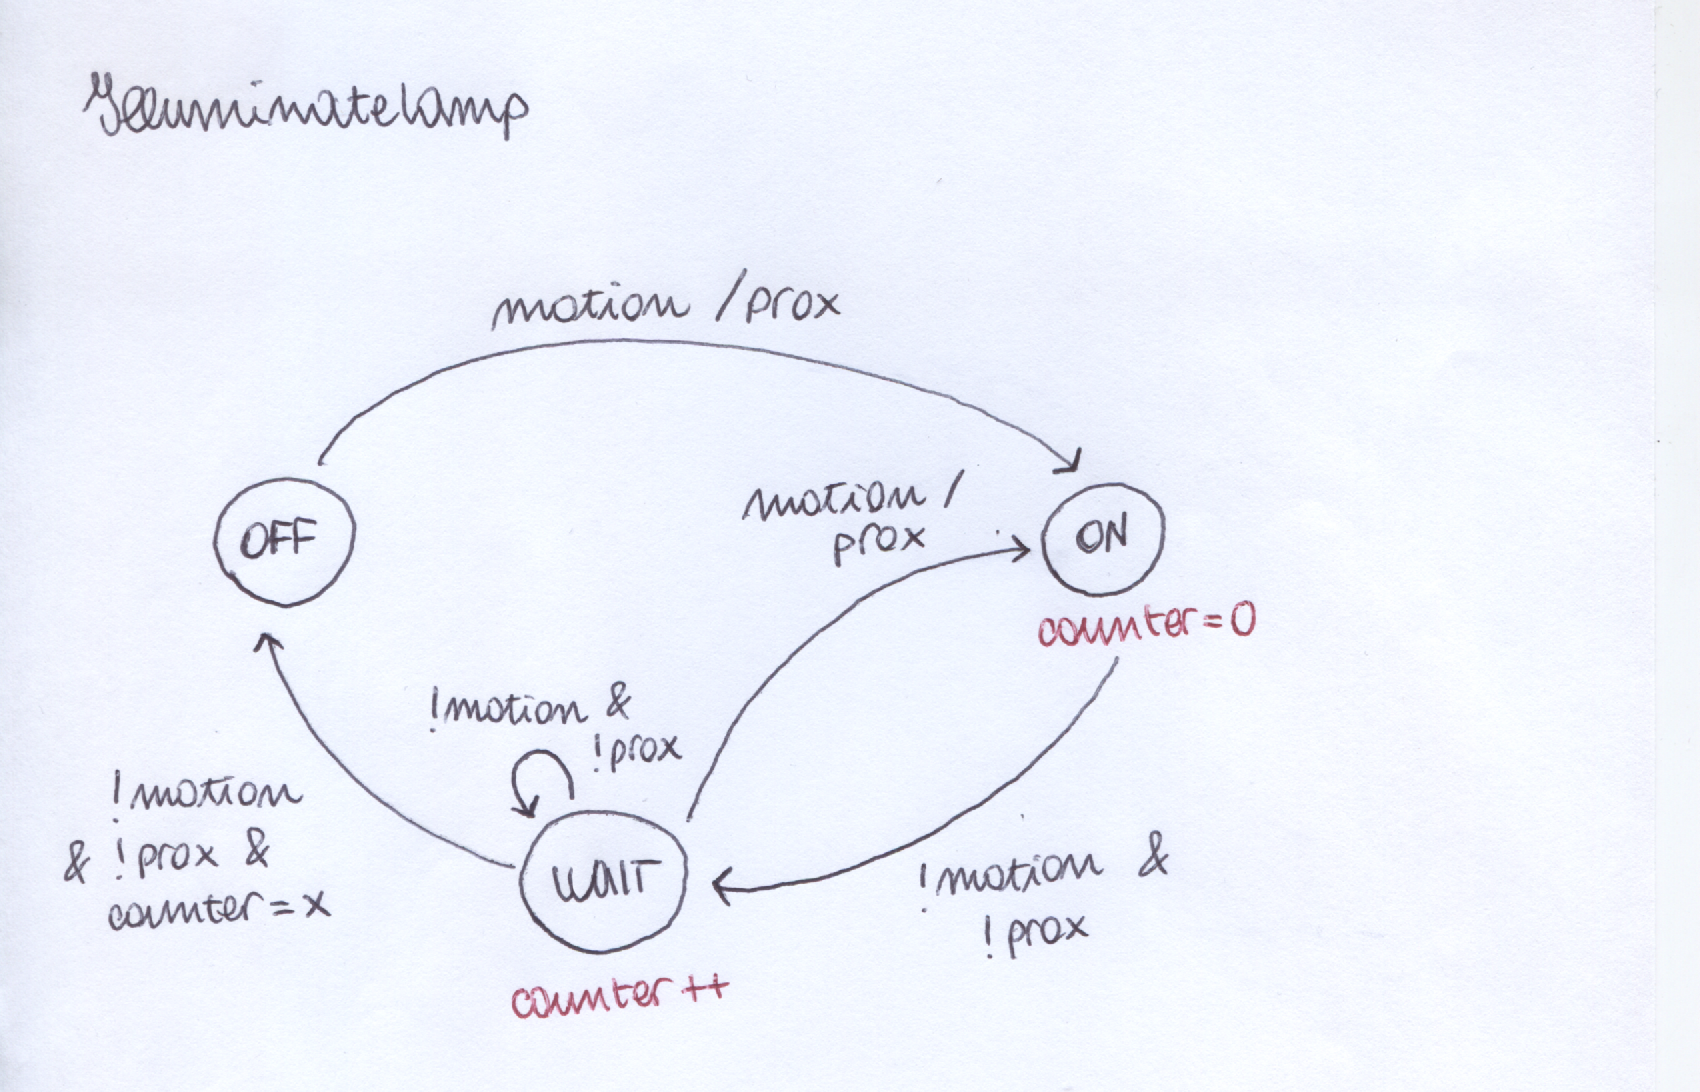 Illuminatelamp
motion / prox
motion /
prox
OFF
ON
counter = 0
!motion &
!prox
!motion
& !prox &
counter = x
WAIT
!motion &
!prox
counter ++